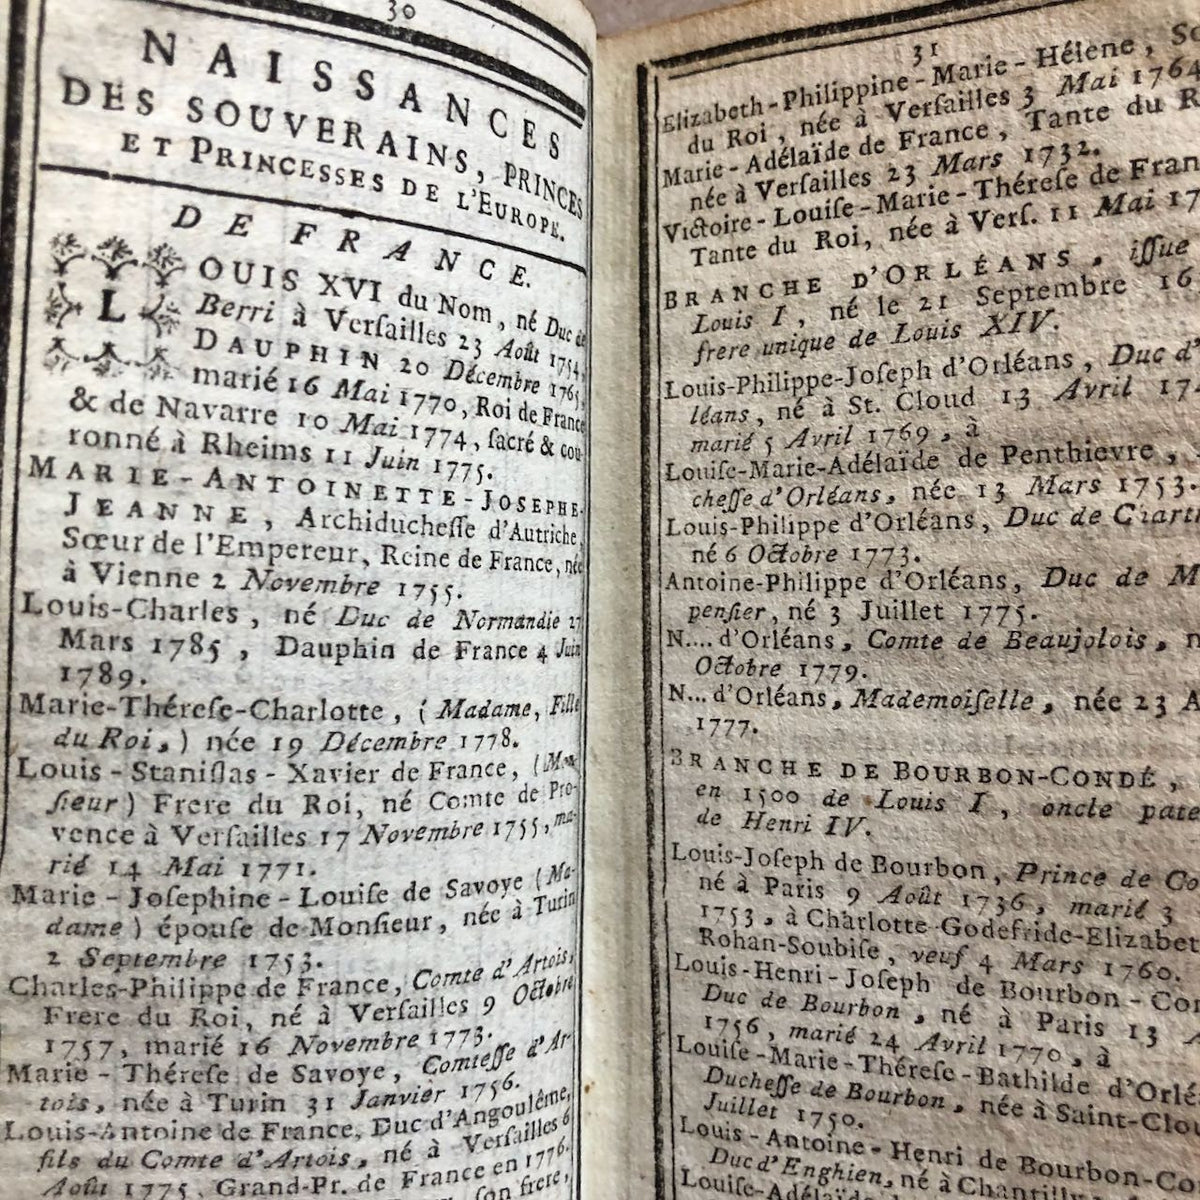 30
NAISSANCES
DES SOUVERAINS, PRINCES
ET PRINCESSES DE L'EUROPE.
DE FRANCE.
LOUIS XVI du Nom, né Duc de
Berri à Verſailles 23 Août 1754,
DAUPHIN 20 Décembre 1765,
marié 16 Mai 1770, Roi de France
& de Navarre 10 Mai 1774, ſacré & cou-
ronné à Rheims 11 Juin 1775.
MARIE-ANTOINETTE-JOSEPHE-
JEANNE, Archiducheſſe d'Autriche,
Sœur de l'Empereur, Reine de France, née
à Vienne 2 Novembre 1755.
Louis-Charles, né Duc de Normandie 27
Mars 1785, Dauphin de France 4 Juin
1789.
Marie-Théreſe-Charlotte, (Madame, Fille
du Roi,) née 19 Décembre 1778.
Louis-Staniſlas-Xavier de France, (Mon-
ſieur) Frere du Roi, né Comte de Pro-
vence à Verſailles 17 Novembre 1755, ma-
rié 14 Mai 1771.
Marie-Joſephine-Louiſe de Savoye (Ma-
dame) épouſe de Monſieur, née à Turin
2 Septembre 1753.
Charles-Philippe de France, Comte d'Artois,
Frere du Roi, né à Verſailles 9 Octobre
1757, marié 16 Novembre 1773.
Marie-Théreſe de Savoye, Comteſſe d'Ar-
tois, née à Turin 31 Janvier 1756.
Louis-Antoine de France, Duc d'Angoulême,
fils du Comte d'Artois, né à Verſailles 6
Août 1775, Grand-Pr. de France en 1776.
ſon frere,
31
Elizabeth-Philippine-Marie-Hélene, Sœ
du Roi, née à Verſailles 3 Mai 1764
Marie-Adélaïde de France, Tante du R
née à Verſailles 23 Mars 1732.
Victoire-Louiſe-Marie-Théreſe de Fran
Tante du Roi, née à Verſ. 11 Mai 17
BRANCHE D'ORLÉANS, iſſue
Louis I, né le 21 Septembre 16
frere unique de Louis XIV.
Louis-Philippe-Joſeph d'Orléans, Duc d'
léans, né à St. Cloud 13 Avril 17
marié 5 Avril 1769, à
Louiſe-Marie-Adélaïde de Penthievre,
cheſſe d'Orléans, née 13 Mars 1753.
Louis-Philippe d'Orléans, Duc de Chartr
né 6 Octobre 1773.
Antoine-Philippe d'Orléans, Duc de M
penſier, né 3 Juillet 1775.
N.... d'Orléans, Comte de Beaujolois, n
Octobre 1779.
N... d'Orléans, Mademoiſelle, née 23 A
1777.
BRANCHE DE BOURBON-CONDÉ,
en 1500 de Louis I, oncle pate
de Henri IV.
Louis-Joſeph de Bourbon, Prince de Co
né à Paris 9 Août 1736, marié 3
1753, à Charlotte-Godefride-Elizabet
Rohan-Soubiſe, veuf 4 Mars 1760.
Louis-Henri-Joſeph de Bourbon-Con
Duc de Bourbon, né à Paris 13
1756, marié 24 Avril 1770, à
Louiſe-Marie-Théreſe-Bathilde d'Orlé
Ducheſſe de Bourbon, née à Saint-Clou
Juillet 1750.
Louis-Antoine-Henri de Bourbon-Co
Duc d'Enghien, né à Chantill
Louiſe-Adélaï